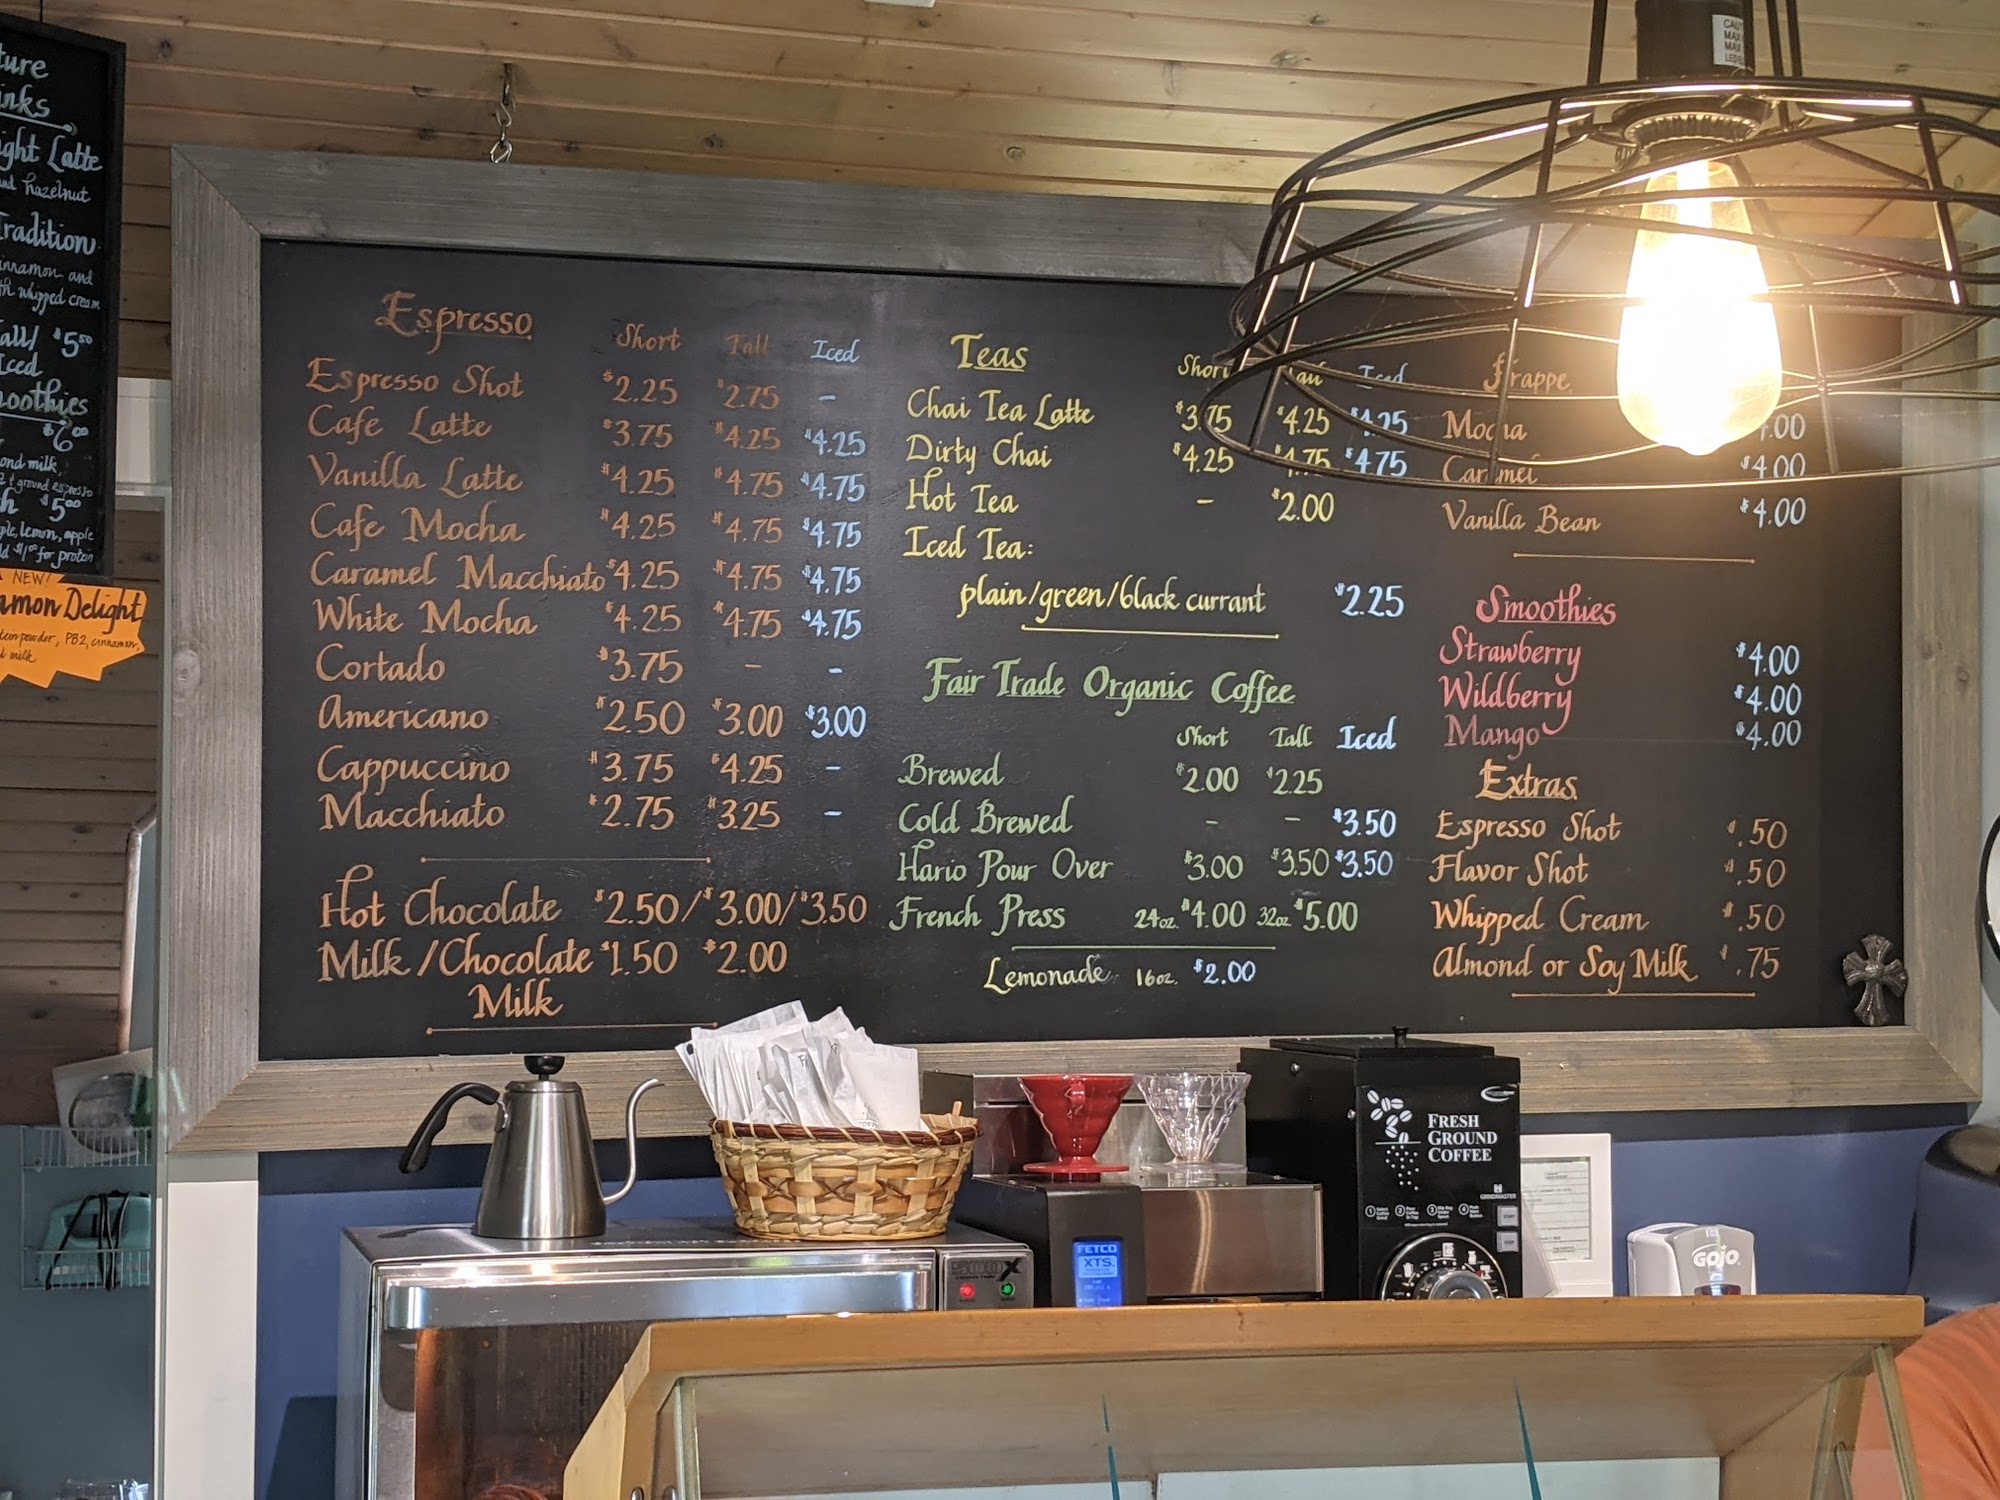 Latte
and hazelnut
Tradition
and
whipped cream
$5⁵⁰
Iced
$6⁰⁰
milk,
ground espresso
$5⁰⁰
lemon, apple
$1⁰⁰ for protein
NEW!
Delight
powder, PB2, cinnamon,
milk
Espresso
Short Tall Iced
Espresso Shot $2.25 $2.75 -
Cafe Latte $3.75 $4.25 $4.25
Vanilla Latte $4.25 $4.75 $4.75
Cafe Mocha $4.25 $4.75 $4.75
Caramel Macchiato $4.25 $4.75 $4.75
White Mocha $4.25 $4.75 $4.75
Cortado $3.75 - -
Americano $2.50 $3.00 $3.00
Cappuccino $3.75 $4.25 -
Macchiato $2.75 $3.25 -
Hot Chocolate $2.50/$3.00/$3.50
Milk/Chocolate $1.50 $2.00
Milk
Teas
Short Tall Iced
Chai Tea Latte $3.75 $4.25 $4.25
Dirty Chai $4.25 $4.75 $4.75
Hot Tea - $2.00
Iced Tea:
plain/green/black currant $2.25
Fair Trade Organic Coffee
Short Tall Iced
Brewed $2.00 $2.25
Cold Brewed - - $3.50
Hario Pour Over $3.00 $3.50 $3.50
French Press 24oz. $4.00 32oz $5.00
Lemonade 16oz. $2.00
Frappe
Mocha 4.00
Caramel $4.00
Vanilla Bean $4.00
Smoothies
Strawberry $4.00
Wildberry $4.00
Mango $4.00
Extras
Espresso Shot $.50
Flavor Shot $.50
Whipped Cream $.50
Almond or Soy Milk $.75
FRESH
GROUND
COFFEE
GRINDMASTER
FETCO
XTS
GOJO